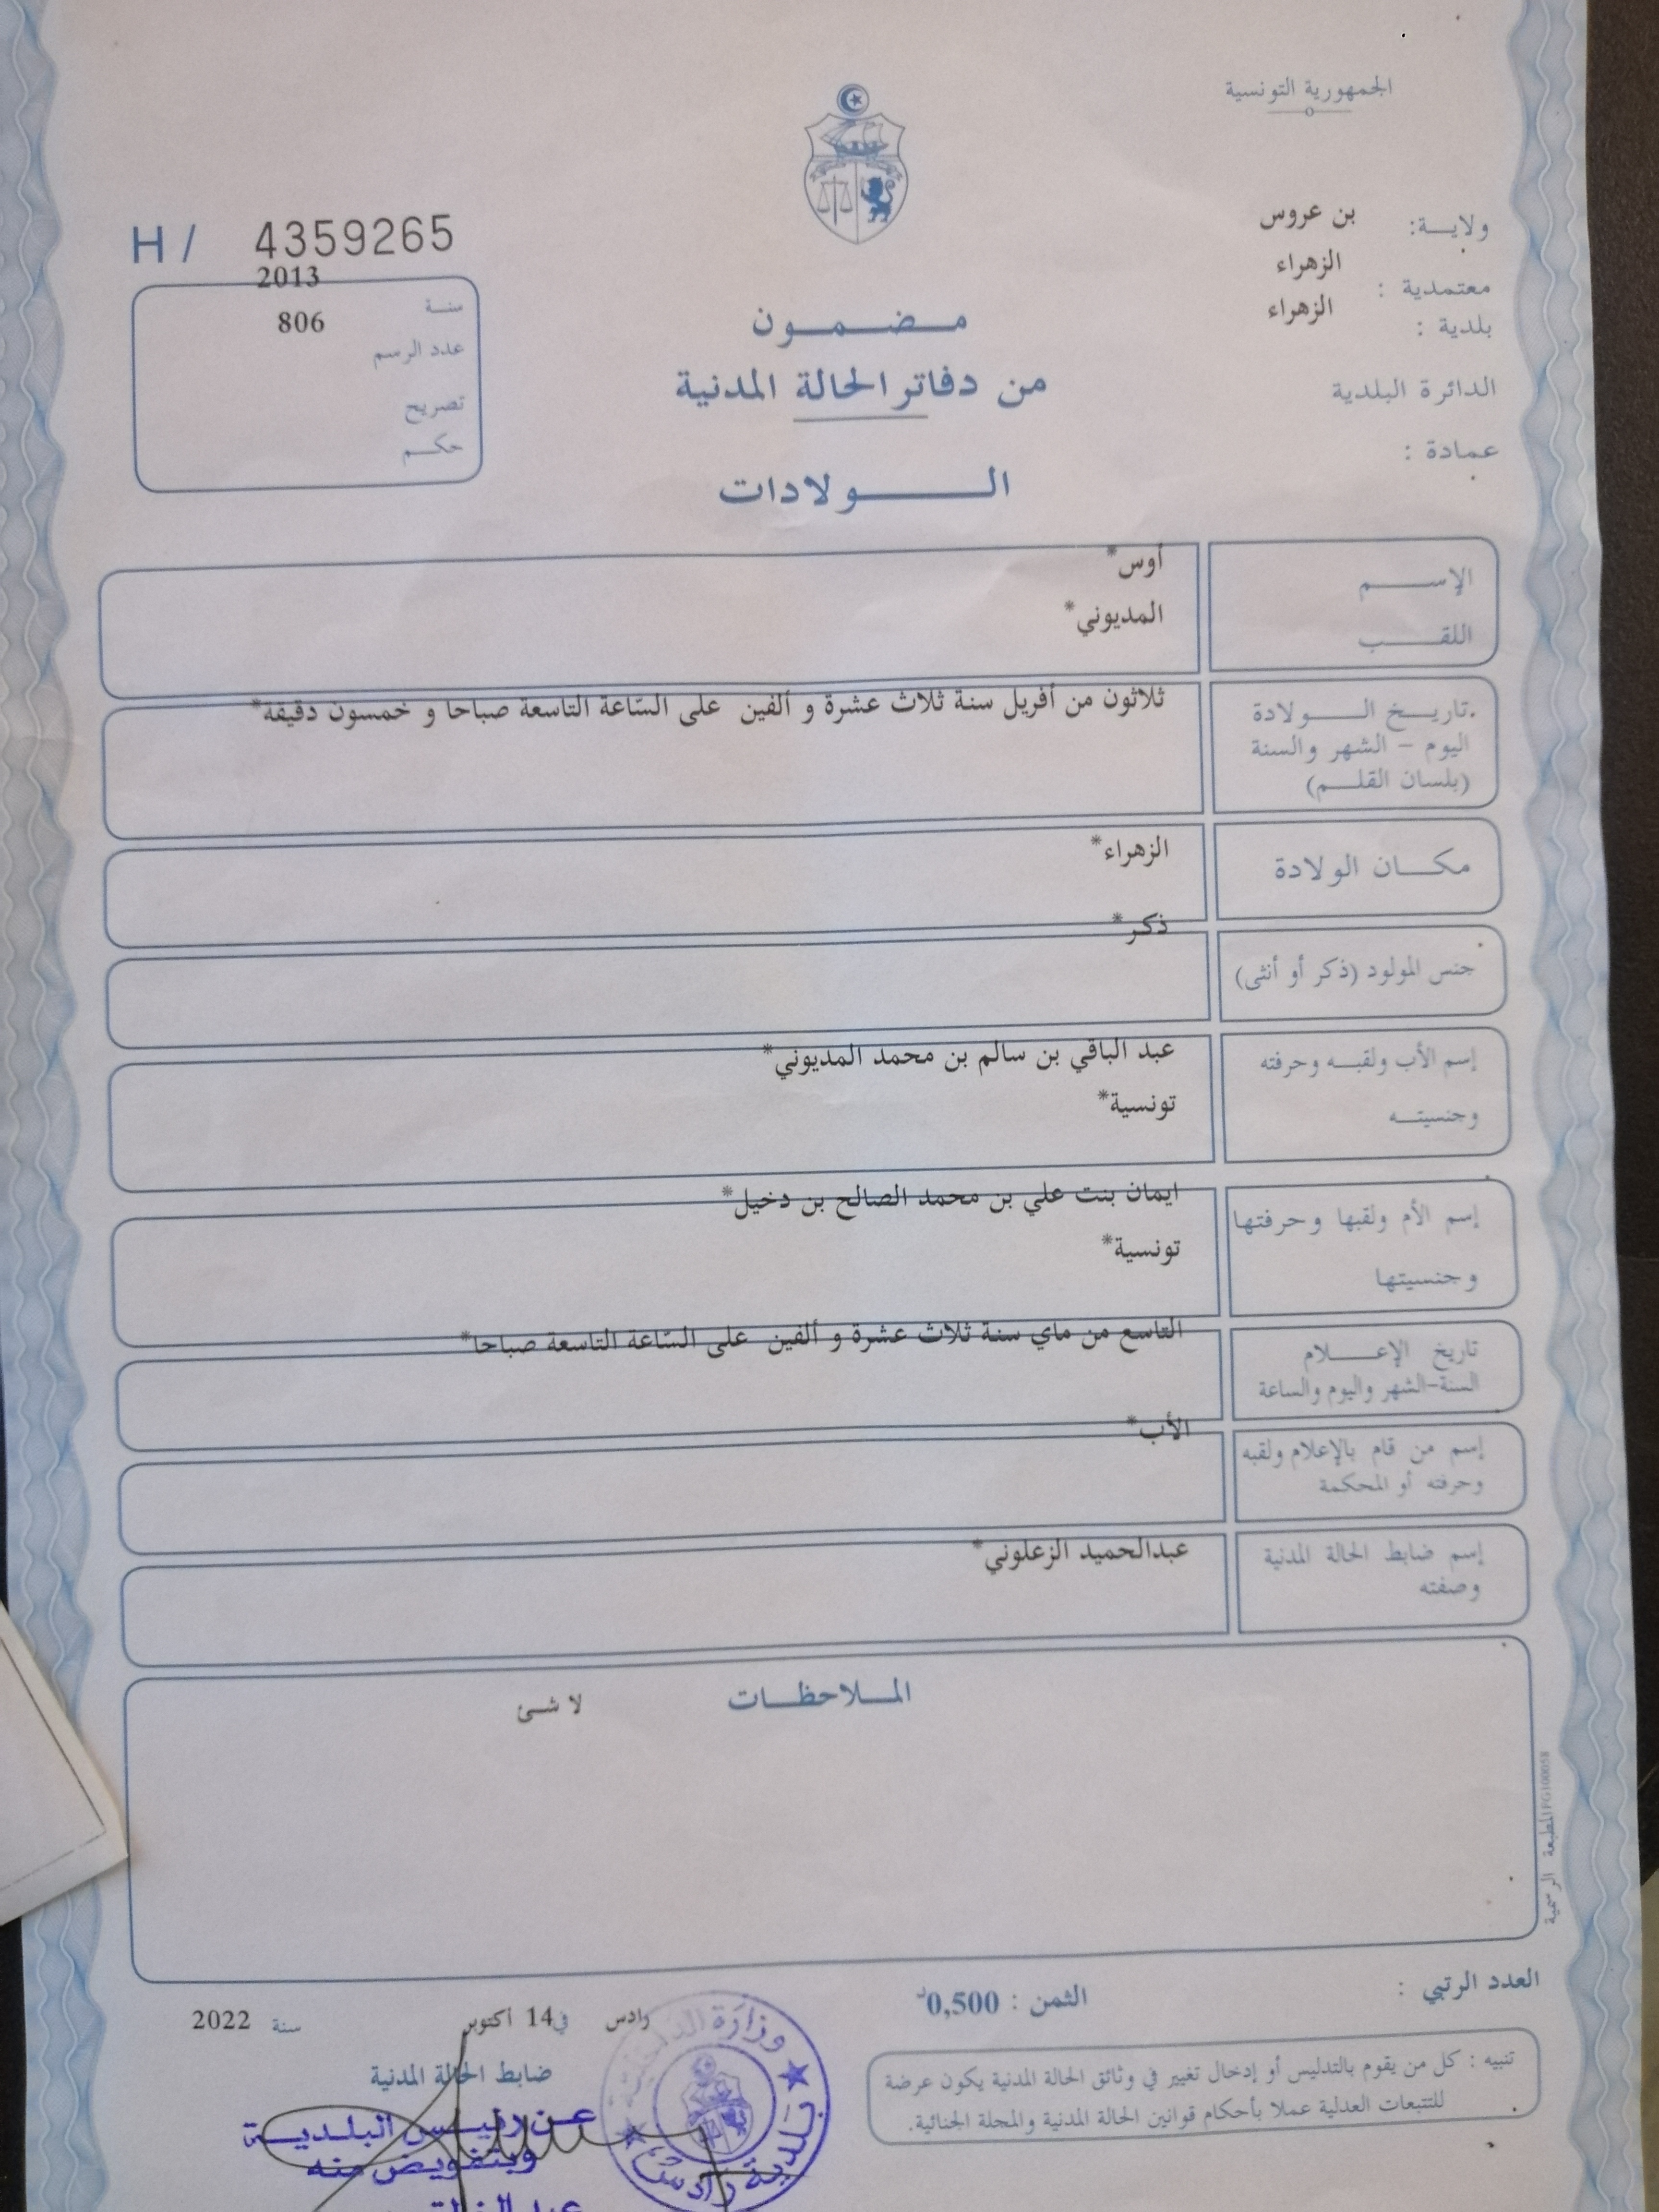 الجمهورية التونسية
ولايــة: بن عروس
معتمدية : الزهراء
بلدية : الزهراء
الدائرة البلدية
عمادة :
H / 4359265
سنة 2013
عدد الرسم 806
تصريح
حكم
مضمون
من دفاتر الحالة المدنية
الولادات
الإسم أوس*
اللقب المديوني*
تاريخ الولادة
اليوم - الشهر والسنة
(بلسان القلم)
ثلاثون من أفريل سنة ثلاث عشرة و ألفين على السّاعة التاسعة صباحا و خمسون دقيقة*
مكان الولادة الزهراء*
جنس المولود (ذكر أو أنثى) ذكر*
إسم الأب ولقبه وحرفته
وجنسيته
عبد الباقي بن سالم بن محمد المديوني*
تونسية*
إسم الأم ولقبها وحرفتها
وجنسيتها
ايمان بنت علي بن محمد الصالح بن دخيل*
تونسية*
تاريخ الإعلام
السنة-الشهر واليوم والساعة
التاسع من ماي سنة ثلاث عشرة و ألفين على السّاعة التاسعة صباحا*
إسم من قام بالإعلام ولقبه
وحرفته أو المحكمة
الأب*
إسم ضابط الحالة المدنية
وصفته
عبدالحميد الزعلوني*
الملاحظات لا شئ
المطبعة الرسمية FG100058
العدد الرتبي :
الثمن : 0,500د
تنبيه : كل من يقوم بالتدليس أو إدخال تغيير في وثائق الحالة المدنية يكون عرضة
للتتبعات العدلية عملا بأحكام قوانين الحالة المدنية والمجلة الجنائية.
رادس في 14 أكتوبر سنة 2022
ضابط الحالة المدنية
عن رئيس البلدية
وبتفويض منه
وزارة
بلدية رادس